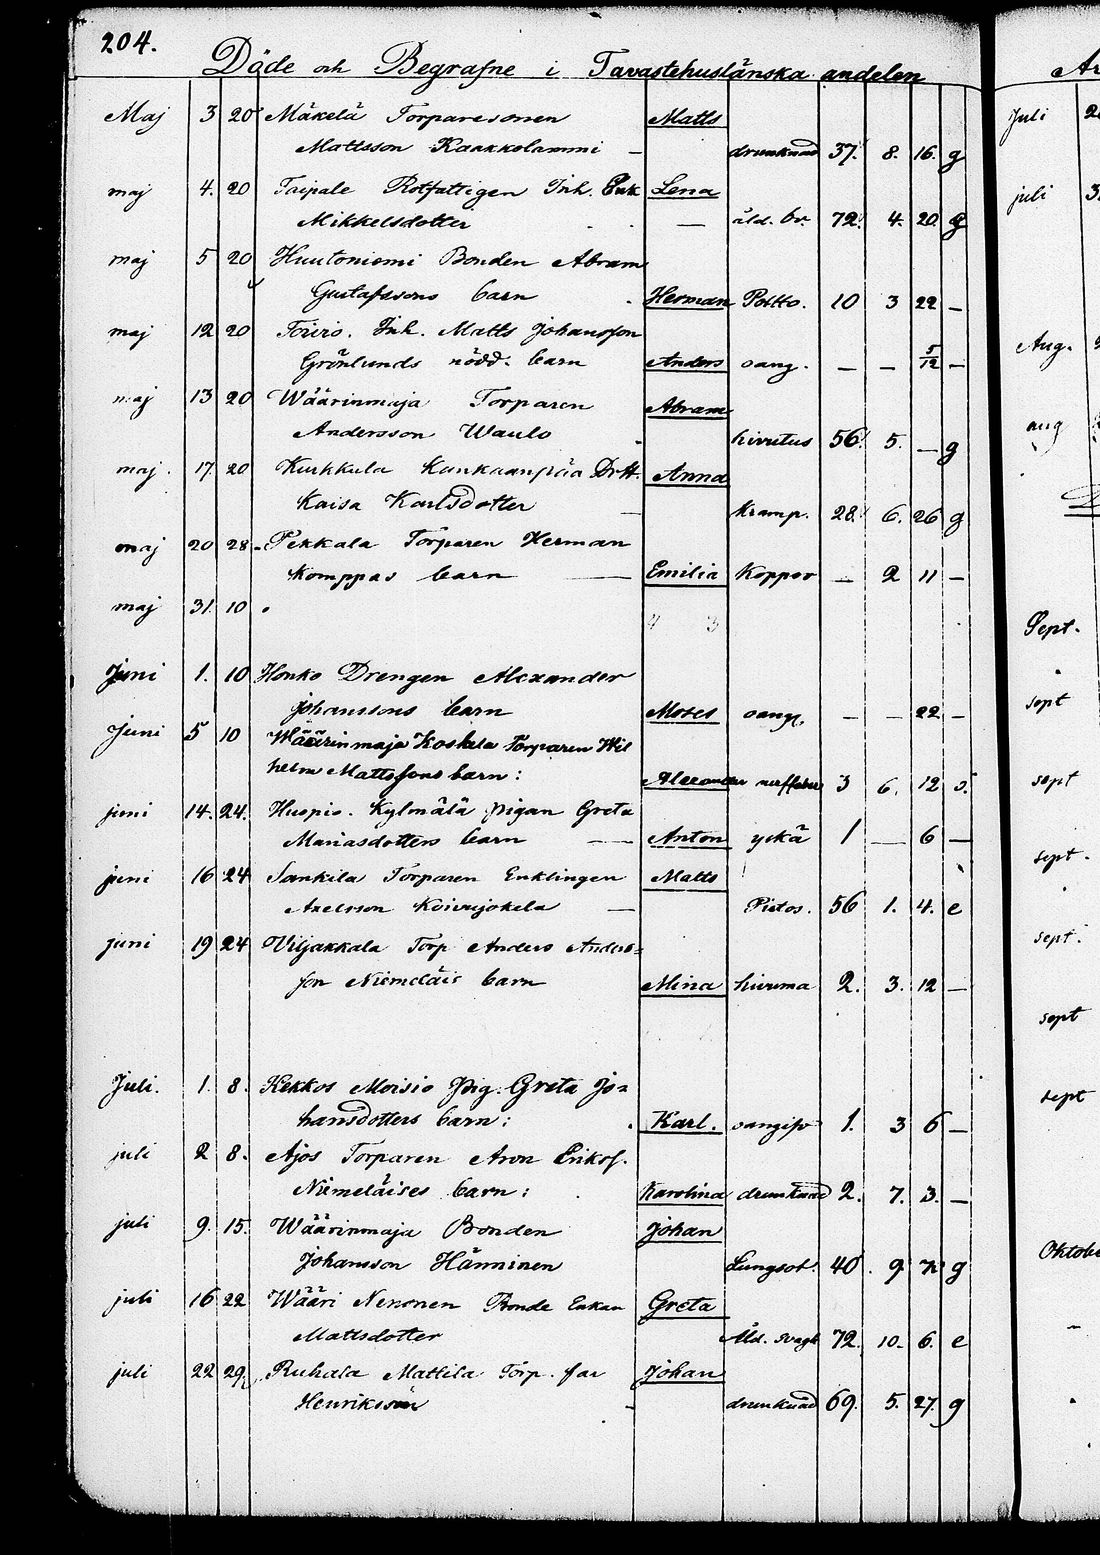 204.
Döde och Begrafne i Tavastehuslänska andelen
Maj 3 20 Mäkelä Torparesonen Matts
Mattsson Kaakkolammi — drunknad 37. 8. 16. g
maj 4. 20 Taipale Rotfattigen Inh. Enk Lena
Mikkelsdotter — åld. br. 72. 4. 20. g
maj 5 20 Huutoniemi Bonden Abram
Gustafssons barn Herman Poltto. 10 3 22 —
maj 12 20 Inh. Matts Johansson
Grönlunds nödd. barn Anders oang. — — 5/12 —
maj 13 20 Wäärinmaja Torparen Abram
Andersson Waulo 56. 5. — g
maj. 17 20 Kurkkula Kankaanpää Dott. Anna
Kaisa Karlsdotter — Kramp. 28. 6. 26 g
maj 20 28 Pekkala Torparen Herman
Komppas barn — Emilia Koppor — 2 11 —
maj 31. 10
4 3
Juni 1. 10 Honko Drengen Alexander
Johanssons barn Moses oang. — — 22 —
Juni 5 10 Wäärinmaja Koskela Torparen Wil
helm Mattssons barn: Alexander 3 6. 12 s.
juni 14. 24. Huspio. Kylmälä pigan Greta
Mariasdotters barn — Anton yckä 1 — 6 —
juni 16 24 Sankila Torparen Enklingen Matts
Axelsson Koivujokela — Pistos. 56 1. 4. e
juni 19 24 Viljakkala Torp Anders Anders=
son Niemeläis barn Mina 2. 3. 12 —
Juli. 1. 8. Kekkos Moisio Pig. Greta Jo=
hansdotters barn: Karl. oangifv 1. 3 6 —
juli 2 8. Ajos Torparen Aron Eriksf.
Niemeläises barn: Karolina drunknad 2. 7. 3. —
juli 9. 15. Wäärinmaja Bonden Johan
Johansson Hänninen Lungsot. 40 9 g
juli 16 22 Wääri Nenonen Bonde Enkan Greta
Mattsdotter Åld. svagh 72. 10. 6. e
juli 22 29. Ruhala Mattila Torp. far Johan
Henriksson — drunknad 69. 5. 27. g
Juli
juli
Aug.
aug
Sept.
sept
sept
sept.
sept.
sept
sept
Oktobe